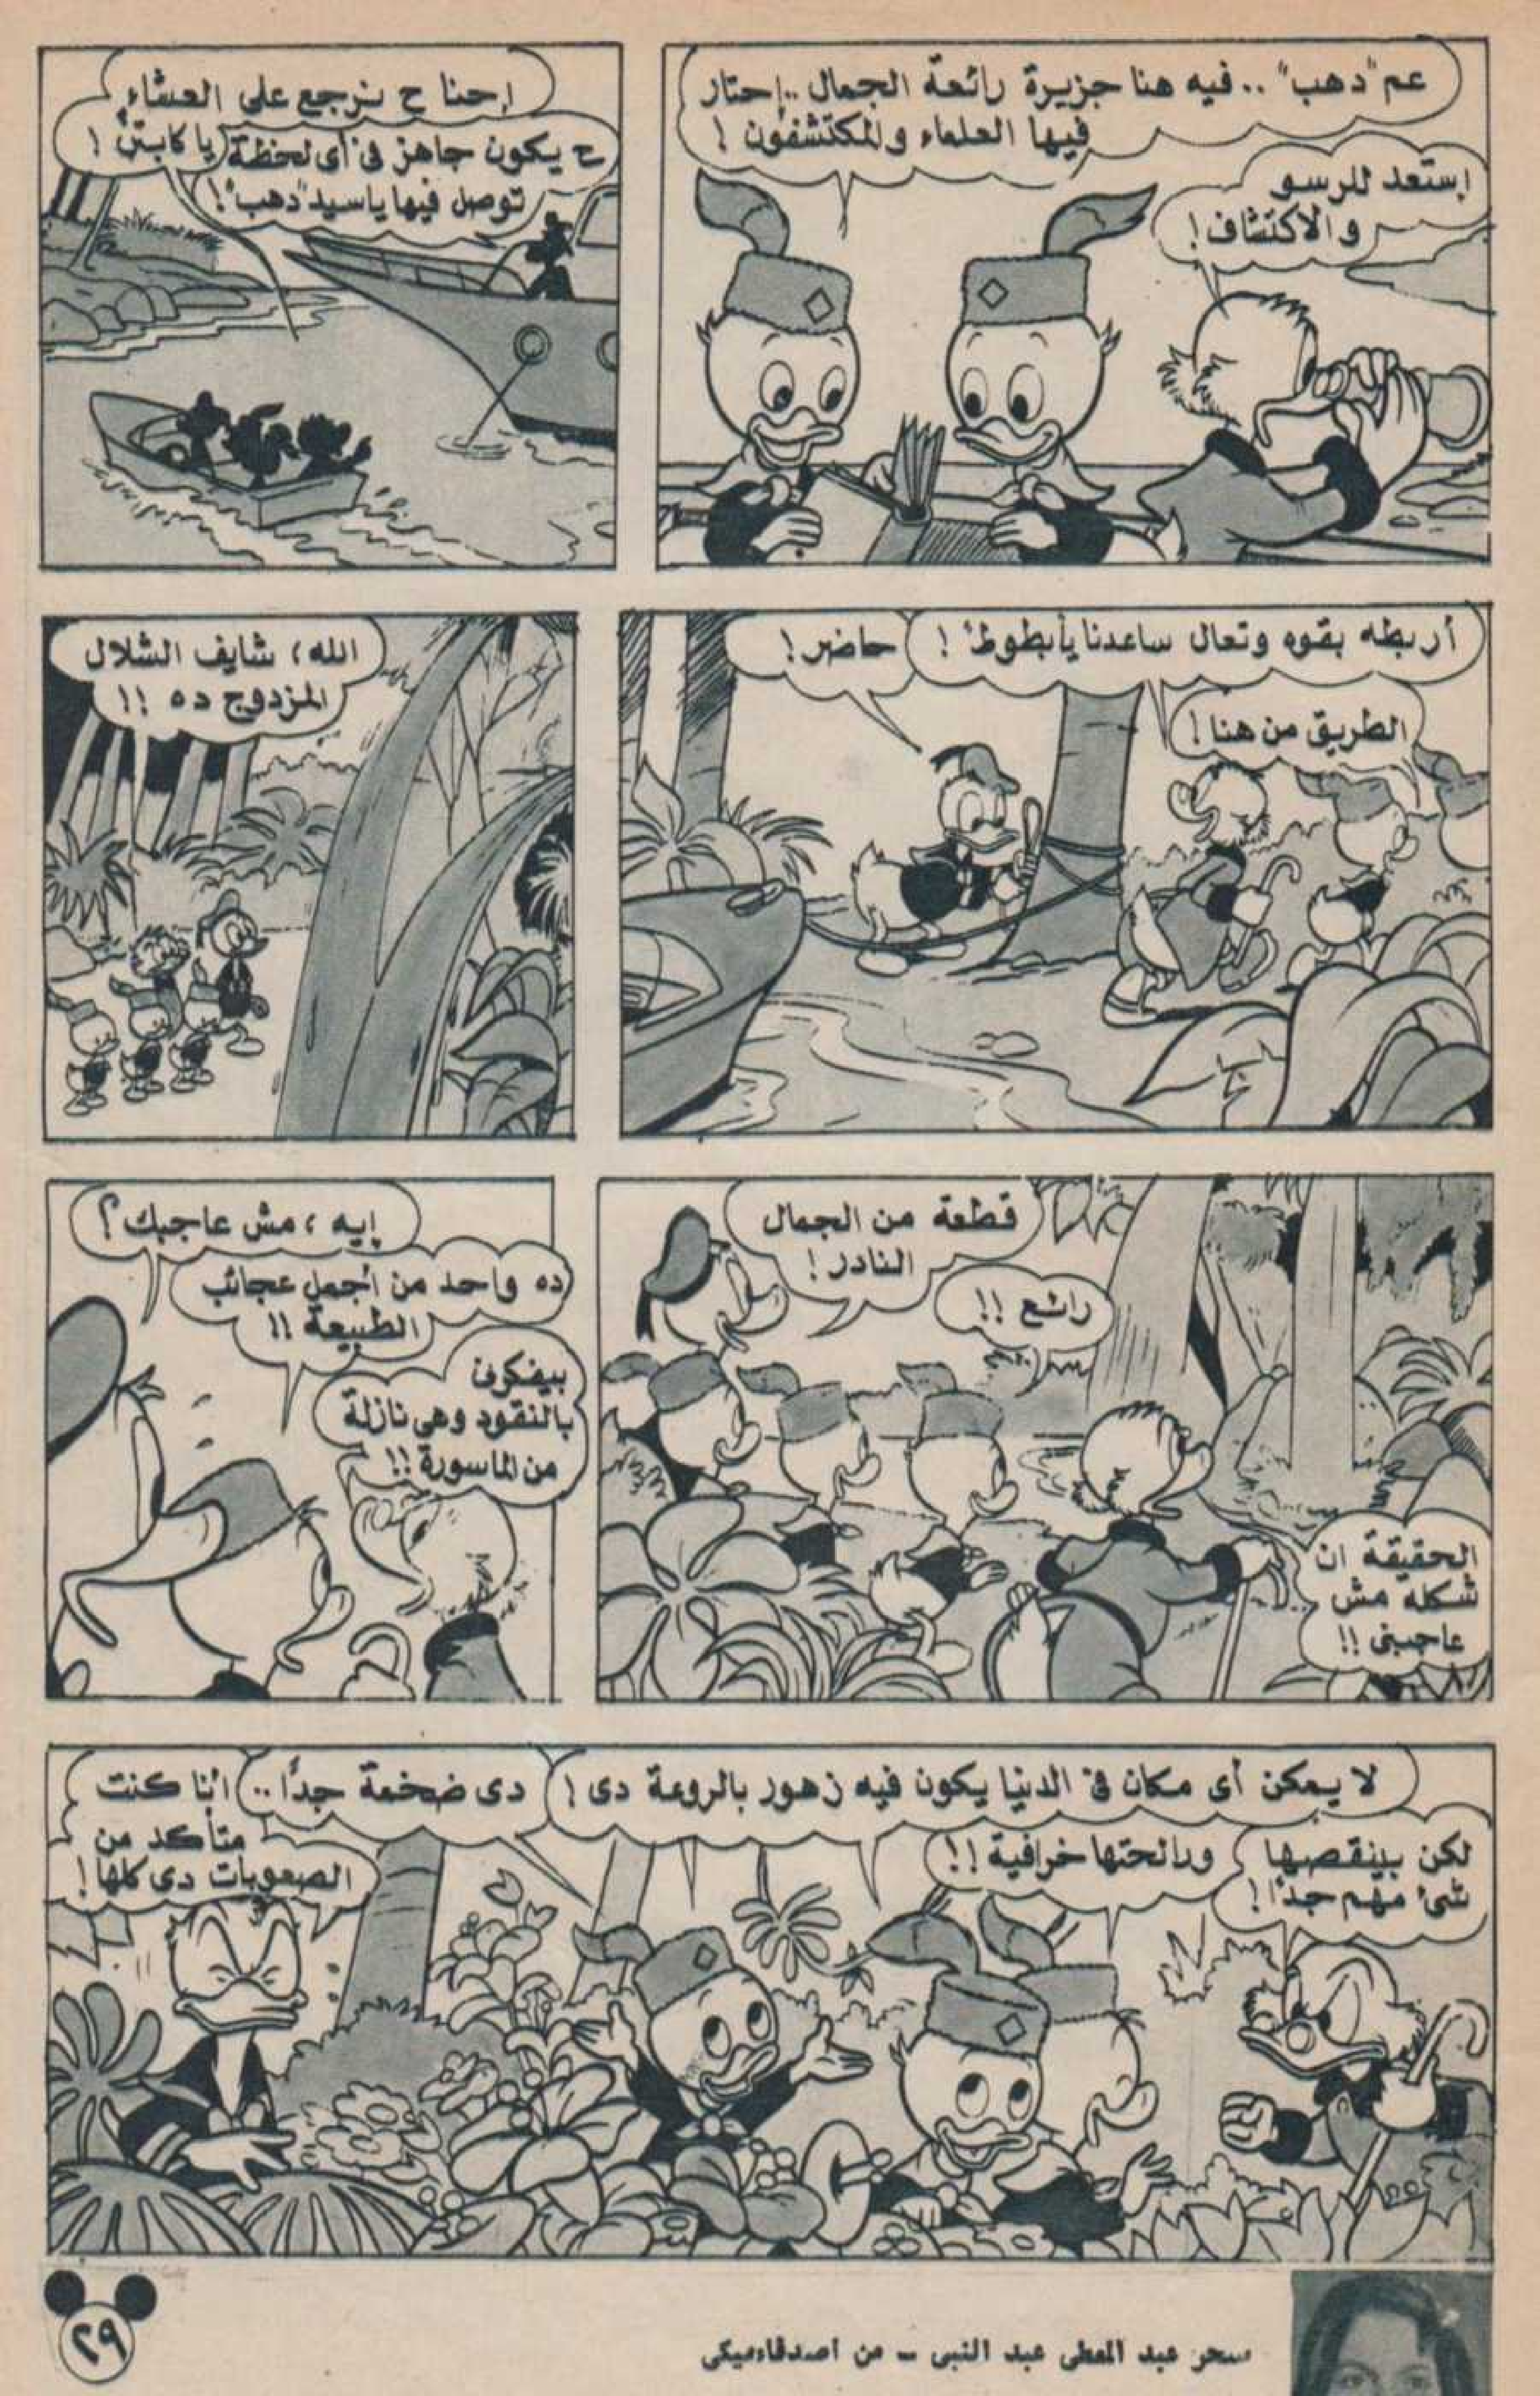 عم "دهب" .. فيه هنا جزيرة رائعة الجمال .. إحتار
فيها العلماء والمكتشفون !
إستعد للرسو
والاكتشاف !
إحنا ح نرجع على العشاء
يا كابتن !
ح يكون جاهز فى أى لحظة
توصل فيها ياسيد "دهب" !
أربطه بقوه وتعال ساعدنا يا بطوط !
حاضر !
الطريق من هنا !
الله ، شايف الشلال
المزدوج ده !!
قطعة من الجمال
النادر !
رائع !!
الحقيقة ان
شكله مش
عاجبنى !!
إيه ، مش عاجبك ؟
ده واحد من أجمل عجائب
الطبيعة !!
بيفكرنى
بالنقود وهى نازلة
من الماسورة !!
لا يمكن أى مكان فى الدنيا يكون فيه زهور بالروعة دى !
دى ضخمة جدًا ..
أنا كنت
متأكد من
الصعوبات دى كلها !
لكن بينقصها
شئ مهم جدًا !
ورائحتها خرافية !!
سحر عبد المعطى عبد النبى - من اصدقاء ميكى
٢٩